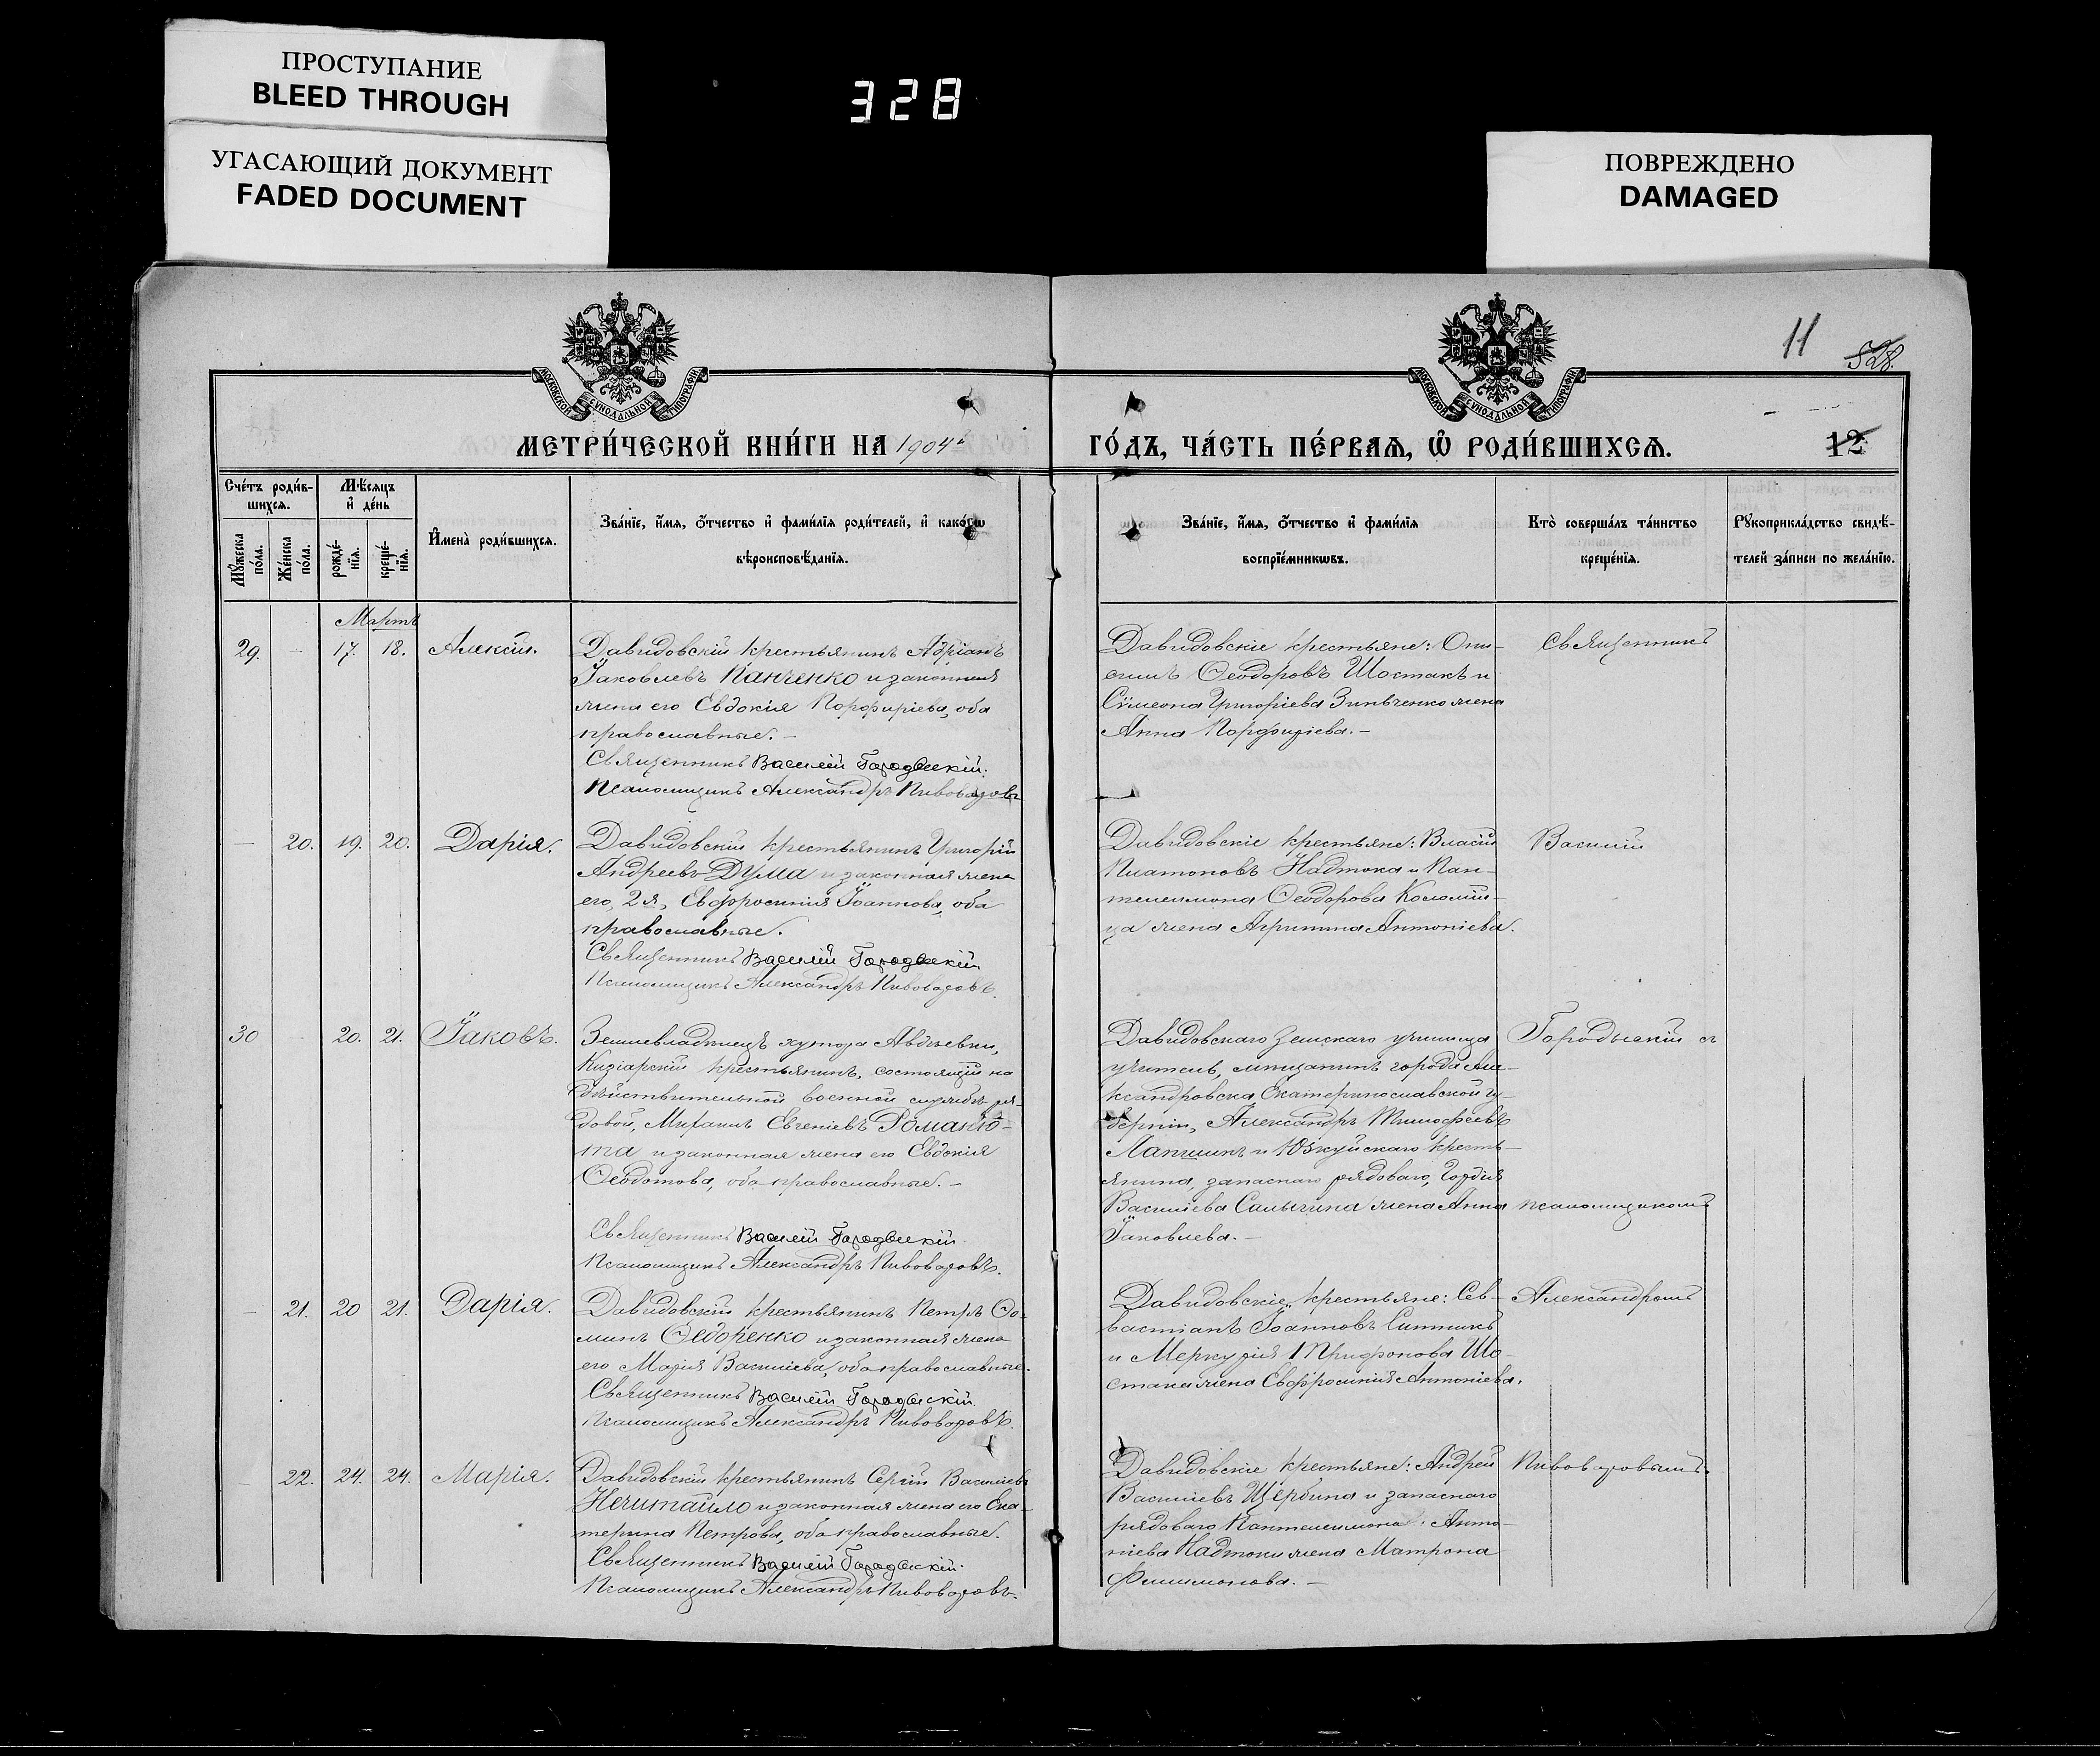 ПРОСТУПАНИЕ
BLEED THROUGH
УГАСАЮЩИЙ ДОКУМЕНТ
FADED DOCUMENT
328
ПОВРЕЖДЕНО
DAMAGED
11
528.
МОСКОВСКОЙ СѴНОДАЛЬНОЙ ТИПОГРАФІИ
МОСКОВСКОЙ СѴНОДАЛЬНОЙ ТИПОГРАФІИ
МЕТРИ́ЧЕСКОЙ КНИ́ГИ НА 1904й
ГО́ДЪ, ЧА́СТЬ ПЕ́РВАѦ, Ѡ РОДИ́ВШИХСѦ.
12
Сче́тъ роди́в-
шихсѧ.
Мѣ́сѧцъ
и҆ де́нь
Мꙋ́жеска
по́ла.
Же́нска
по́ла.
рожде́-
нїѧ.
креще́-
нїѧ.
И҆мена̀ роди́вшихсѧ.
Зва́нїе, и҆́мѧ, ѻ҆́тчество и҆ фами́лїѧ роди́телей, и҆ како́гѡ
вѣроисповѣ́данїѧ.
Зва́нїе, и҆́мѧ, ѻ҆́тчество и҆ фами́лїѧ
воспрїе́мникѡвъ.
Кто̀ соверша́лъ та́инство
креще́нїѧ.
Рꙋкоприкла́дство свидѣ́-
телей за́писи по жела́нїю.
Мартъ
29. — 17. 18. Алексій.
Давидовскій крестьянинъ Адріанъ
Іаковлевъ Панченко и законная
жена его Евдокія Порфиріева, оба
православные. —
Священникъ Василій Городысскій.
Псаломщикъ Александръ Пивоваровъ
Давидовскіе крестьяне: Они-
симъ Ѳеодоровъ Шостакъ и
Сѵмеона Григоріева Зинченко жена
Анна Порфиріева. —
Священникъ
— 20. 19. 20. Дарія.
Давидовскій крестьянинъ Григорій
Андреевъ Дума и законная жена
его, 2я, Евфросинія Іоаннова, оба
православные.
Священникъ Василій Городысскій
Псаломщикъ Александръ Пивоваровъ.
Давидовскіе крестьяне: Власій
Платоновъ Надтока и Пан-
телеимона Ѳеодорова Коломій-
ца жена Агрипина Антоніева.
Василій
30 20. 21. Іаковъ.
Землевладѣлецъ хутора Авдѣевки,
Кизіарскій крестьянинъ, состоящій на
дѣйствительной военной службѣ ря-
довой, Михаилъ Евгеніевъ Романю-
та и законная жена его Евдокія
Ѳеодотова, оба православные. —
Священникъ Василій Городысскій
Псаломщикъ Александръ Пивоваровъ.
Давидовскаго земскаго училища
учитель, мѣщанинъ города Але-
ксандровска Екатеринославской гу-
берніи, Александръ Тимофеевъ
Лапшинъ и Юзкуйскаго кресть-
янина, запаснаго рядоваго, Гордія
Василіева Салыгина жена Анна
Іаковлева. —
Городысскій съ
псаломщикомъ
— 21. 20 21. Дарія.
Давидовскій крестьянинъ Петръ Ѳо-
минъ Ѳедоренко и законная жена
его Марія Василіева, оба православные.
Священникъ Василій Городысскій
Псаломщикъ Александръ Пивоваровъ.
Давидовскіе крестьяне: Сев-
astіанъ Іоанновъ Ситникъ
и Меркурія Трифонова Шо-
стака жена Евфросинія Антоніева.
Александромъ
— 22. 24. 24. Марія.
Давидовскій крестьянинъ Сергій Василіевъ
Нечитайло и законная жена его Ека-
терина Петрова, оба православные.
Священникъ Василій Городысскій
Псаломщикъ Александръ Пивоваровъ.
Давидовскіе крестьяне: Андрей
Василіевъ Щербина и запаснаго
рядоваго Пантелеимона Анто-
ніева Надтоки жена Матрона
Филимонова. —
Пивоваровымъ.